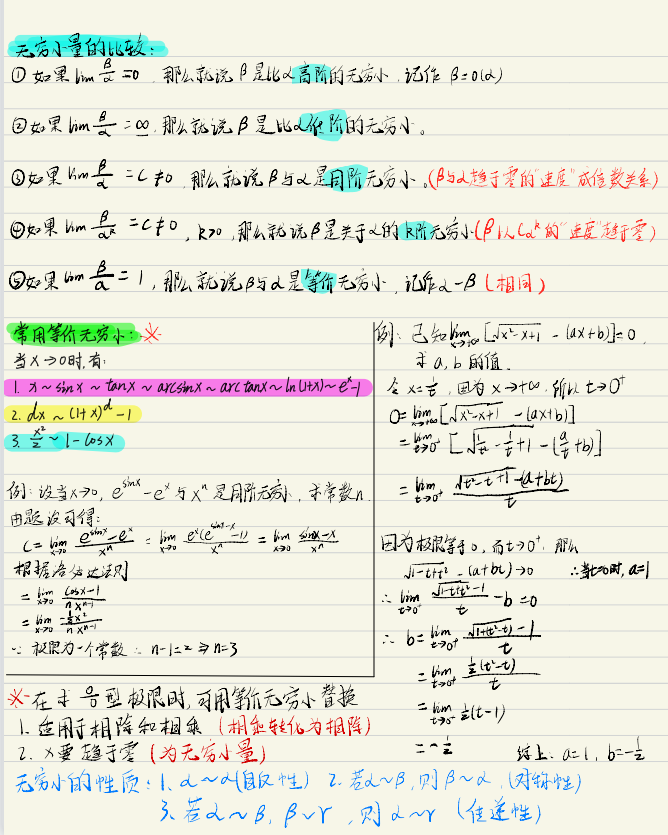 无穷小量的比较:
① 如果 lim β/α = 0, 那么就说 β 是比 α 高阶的无穷小, 记作 β=o(α)
② 如果 lim β/α = ∞, 那么就说 β 是比 α 低阶的无穷小。
③ 如果 lim β/α = c ≠ 0, 那么就说 β 与 α 是同阶无穷小。(β与α趋于零的"速度"成倍数关系)
④ 如果 lim β/α^k = c ≠ 0, k>0, 那么就说 β 是关于 α 的 k阶无穷小 (β 以 Cα^k 的"速度"趋于零)
⑤ 如果 lim β/α = 1, 那么就说 β 与 α 是等价无穷小, 记作 α~β (相同)
常用等价无穷小: ※
当 x→0时, 有:
1. x ~ sinx ~ tanx ~ arcsinx ~ arctanx ~ ln(1+x) ~ e^x-1
2. αx ~ (1+x)^α -1
3. x²/2 ~ 1-cosx
例: 设当 x→0, e^sinx - e^x 与 x^n 是同阶无穷小, 求常数n.
由题设可得:
C = lim x→0 (e^sinx - e^x)/x^n = lim x→0 e^x(e^(sinx-x) -1)/x^n = lim x→0 (sinx-x)/x^n
根据洛必达法则
= lim x→0 (cosx-1)/(n x^(n-1))
= lim x→0 (-½x²)/(n x^(n-1))
∵ 极限为一个常数 ∴ n-1=2 ⇒ n=3
例: 已知 lim x→+∞ [√(x²-x+1) - (ax+b)] = 0,
求 a, b 的值.
令 x=1/t, 因为 x→+∞, 所以 t→0⁺
0 = lim x→+∞ [√(x²-x+1) - (ax+b)]
= lim t→0⁺ [√(1/t² - 1/t + 1) - (a/t + b)]
= lim t→0⁺ (√(t²-t+1) - (a+bt))/t
因为极限等于0, 而 t→0⁺, 那么
√(1-t+t²) - (a+bt) → 0 ∴当t=0时, a=1
∴ lim t→0⁺ (√(1-t+t²) - 1)/t - b = 0
∴ b = lim t→0⁺ (√(1+(t²-t)) - 1)/t
= lim t→0⁺ ½(t²-t)/t
= lim t→0⁺ ½(t-1)
= -½ 综上: a=1, b=-½
※ 在求 0/0 型极限时, 可用等价无穷小替换
1. 适用于相除和相乘 (相乘转化为相除)
2. x要趋于零 (为无穷小量)
无穷小的性质: 1. α~α(自反性) 2. 若α~β, 则β~α, (对称性)
3. 若α~β, β~γ, 则α~γ (传递性)